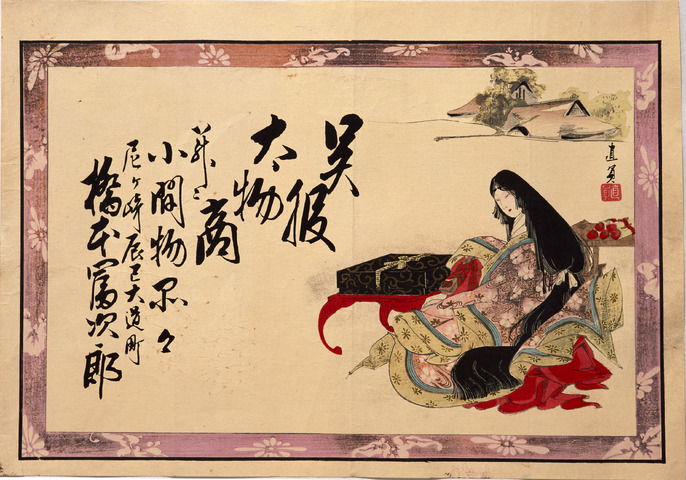 呉服
太物
并ニ商
小間物品々
尼ヶ崎辰巳大道町
橋本富次郎